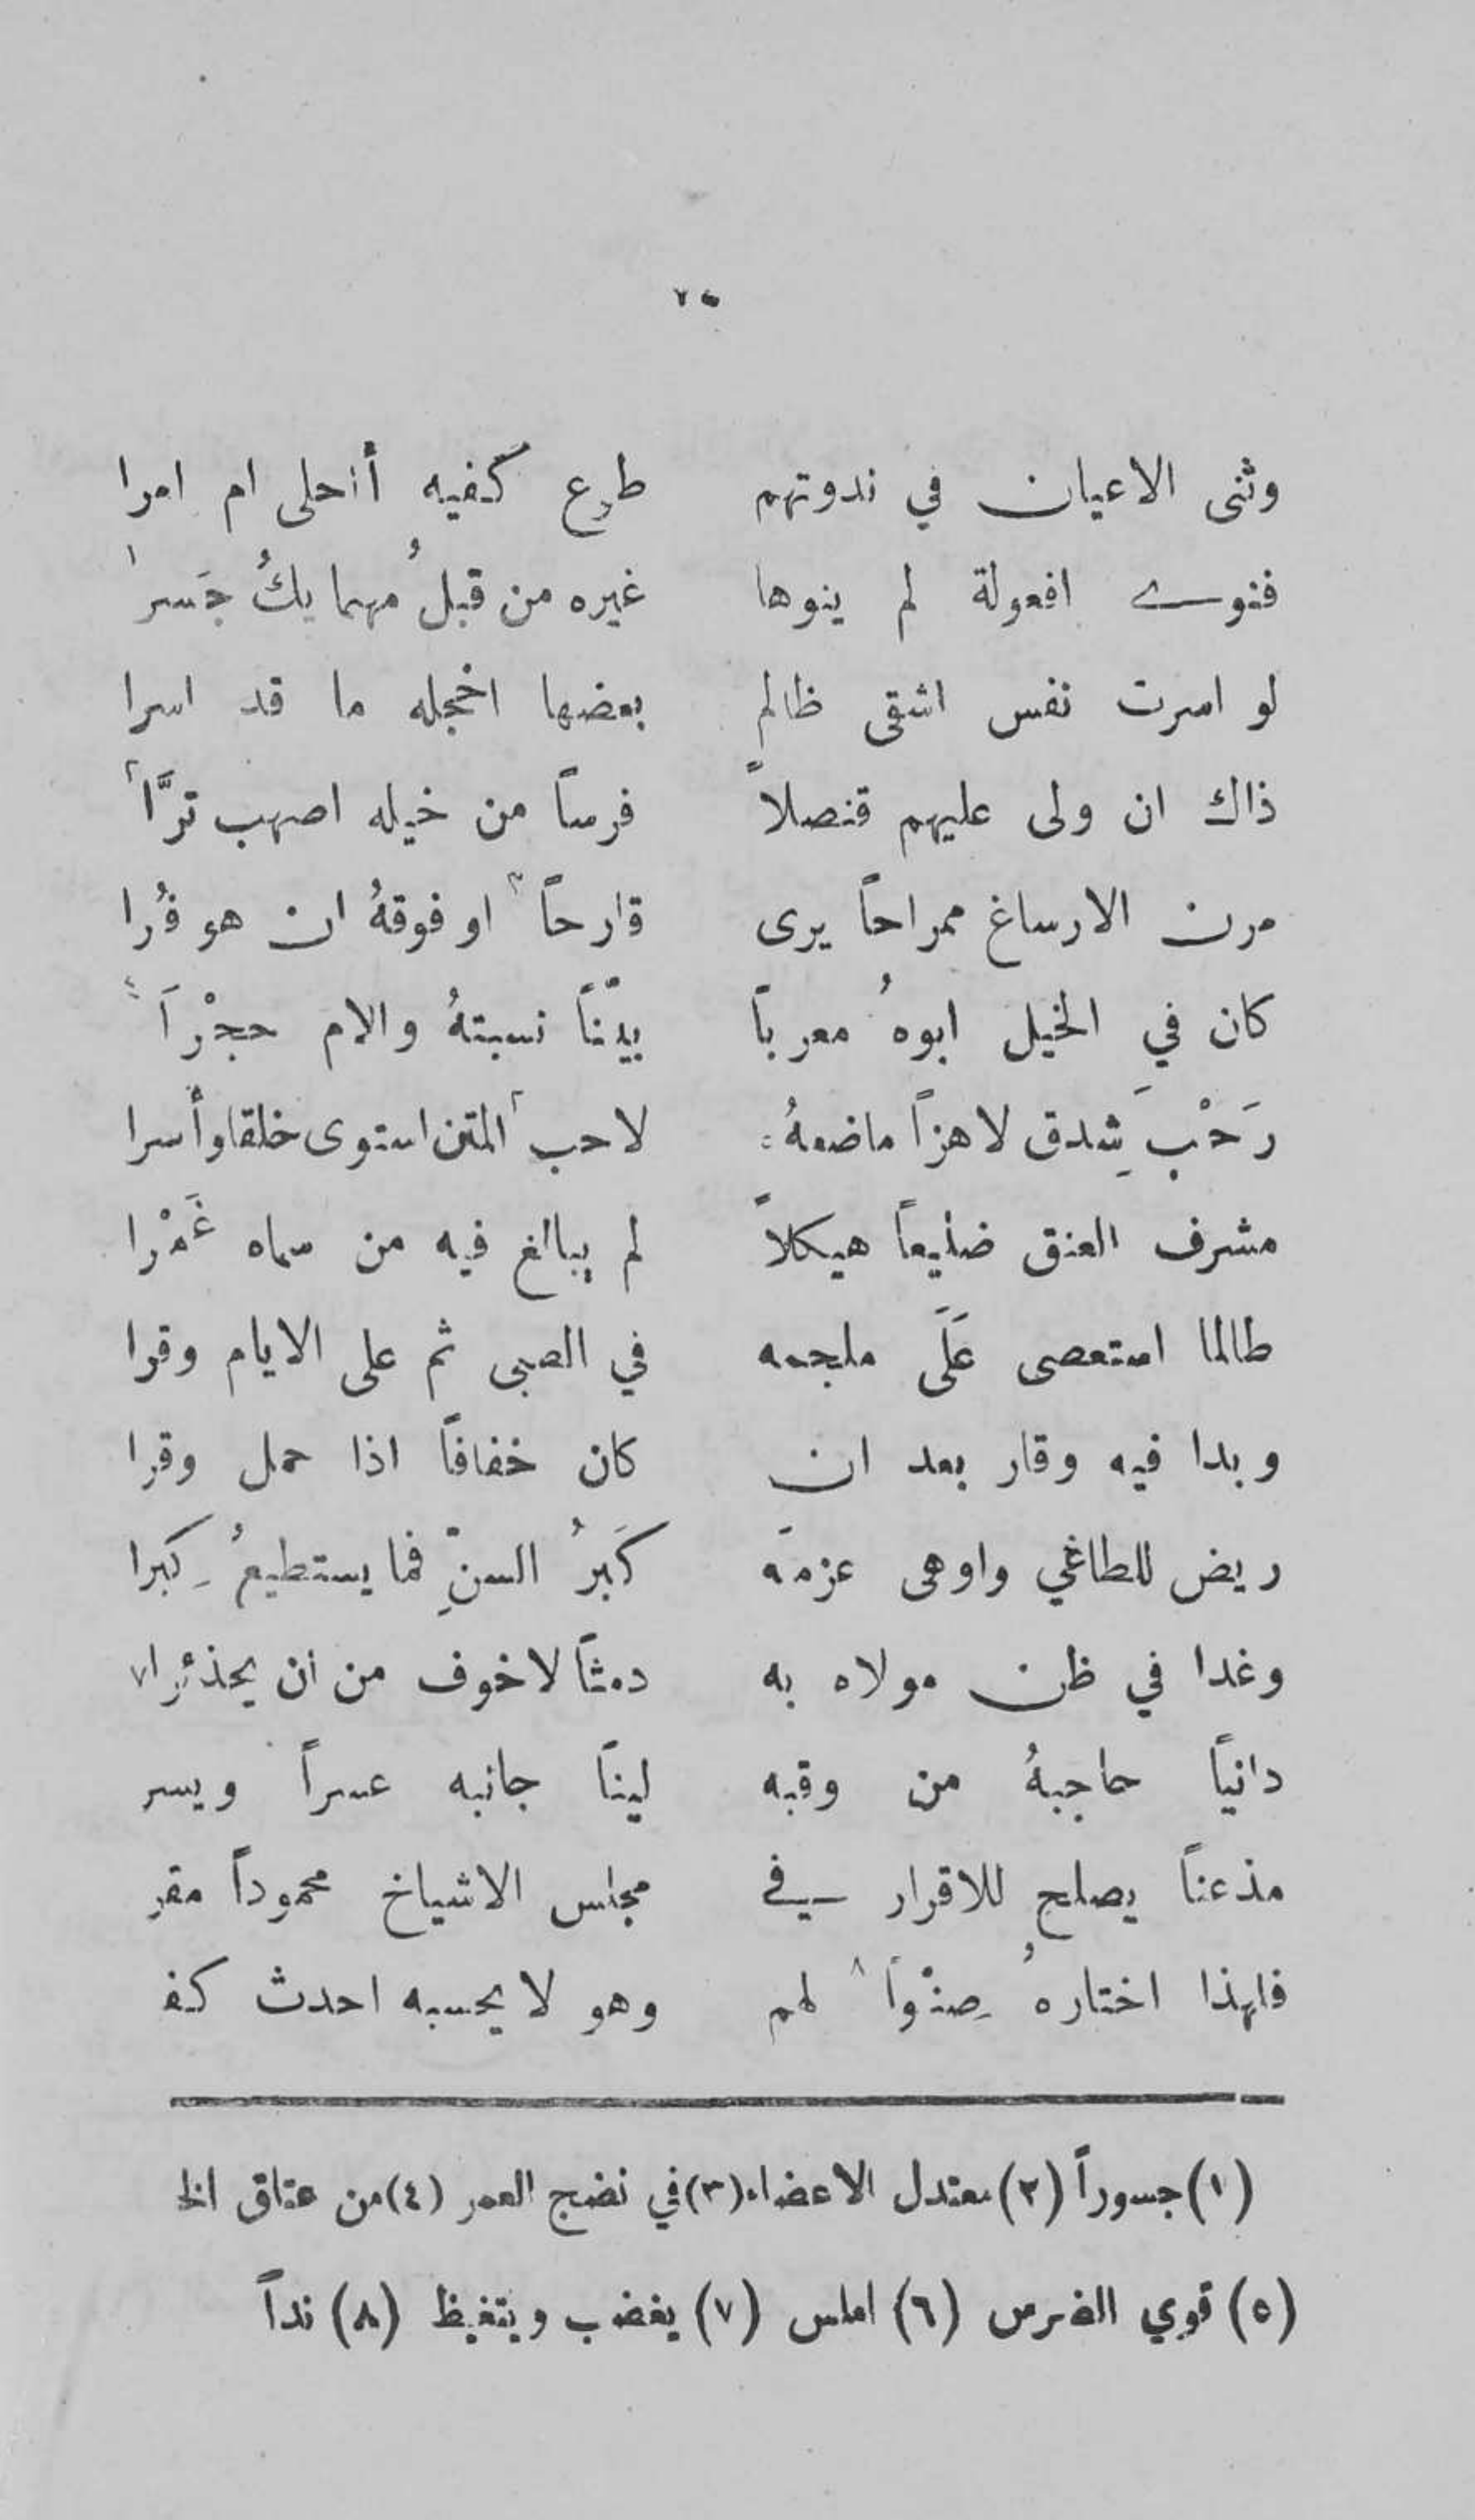 ٢٥
وثنى الاعيان في ندوتهم طوع كفيه أاحلى ام امرا
فنوى افعولة لم ينوها غيره من قبلُ مهما يكُ جَسرا١
لو اسرت نفس اشقى ظالم بعضها اخجله ما قد اسرا
ذاك ان ولى عليهم قنصلاً فرساً من خيله اصهب ترَّا٢
مرن الارساغ ممراحاً يرى قارحاً٣ او فوقهُ ان هو فُرا
كان في الخيل ابوهُ معرباً بيّناً نسبتهُ والام حجْراً٤
رَحْبَ شِدق لاهزاً ماضغهُ٥ لاحب٦ المتن استوى خلقا وأسرا
مشرف العنق ضليعاً هيكلاً لم يبالغ فيه من سماه غَمْرا
طالما استعصى عَلَى ملجمه في الصبى ثم على الايام وقرا
وبدا فيه وقار بعد ان كان خفافاً اذا حمل وقرا
ريض للطاغي واوهى عزمَه كَبَرُ السنِّ فما يستطيعُ كِبرا
وغدا في ظن مولاه به دمثاً لا خوف من ان يحذئرا٧
دانياً حاجبهُ من وقبه ليناً جانبه عسراً ويسر
مذعناً يصلح للاقرار في مجلس الاشياخ محموداً مقر
فلهذا اختارهُ صِنْواً٨ لهم وهو لا يحسبه احدث كف
(١) جسوراً (٢) معتدل الاعضاء (٣) في نضج العمر (٤) من عتاق الخ
(٥) قوي الضرس (٦) املس (٧) يغضب ويتغيظ (٨) نداً